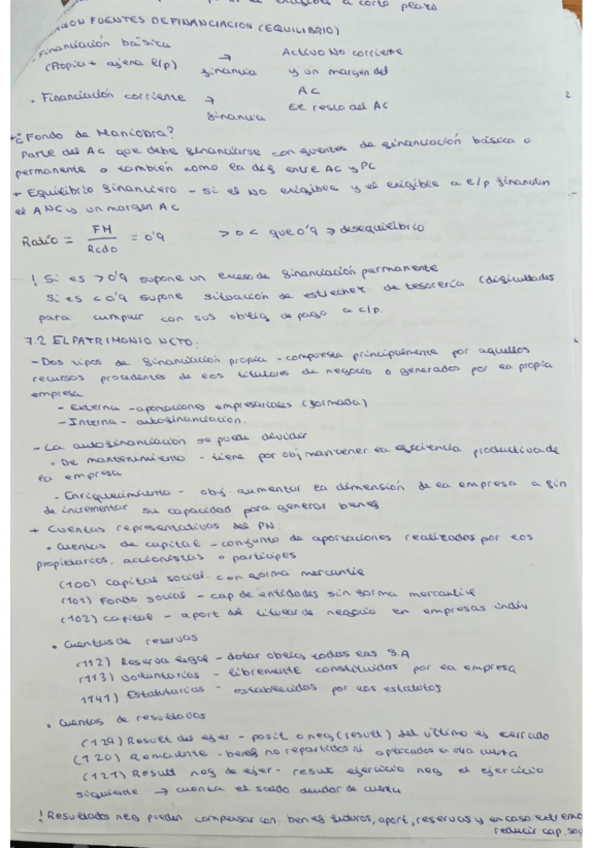 exigible a corto plazo
FUENTES DE FINANCIACION (EQUILIBRIO)
· Financiación básica → Activo No corriente
(Propia + ajena l/p) financia y un margen del
AC
· Financiación corriente → El resto del AC
financia
+ ¿Fondo de Maniobra?
Parte del AC que debe financiarse con fuentes de financiación básica o
permanente o también como la dif entre AC y PC
+ Equilibrio financiero - si el No exigible y el exigible a l/p financian
el ANC y un margen AC
Ratio = FM / Rcdo = 0'9 > o < que 0'9 → desequilibrio
! Si es > 0'9 supone un exceso de financiación permanente
Si es < 0'9 supone situación de estrechez de tesorería (dificultades
para cumplir con sus oblig de pago a c/p.
7.2 EL PATRIMONIO NETO:
- Dos tipos de financiación propia - compuesta principalmente por aquellos
recursos procedentes de los titulares de negocio o generados por la propia
empresa
- Externa - aportaciones empresariales (formada)
- Interna - autofinanciación.
- La autofinanciación se puede dividir
· De mantenimiento - tiene por obj mantener la eficiencia productiva de
la empresa
· Enriquecimiento - obj. aumentar la dimensión de la empresa a fin
de incrementar su capacidad para generar benef
+ Cuentas representativas del PN:
· Cuentas de capital - conjunto de aportaciones realizados por los
propietarios, accionistas o participes
(100) Capital social - con forma mercantil
(101) Fondo social - cap de entidades sin forma mercantil
(102) Capital - aport del titular de negocio en empresas indiv
· Cuentas de reservas
(112) Reserva legal - dotar oblig todas las S.A
(113) Voluntarias - libremente constituidas por la empresa
1141) Estatutarias - establecidos por los estatutos
· Cuentas de resultados
(129) Result del ejer - posit o neg (result) del último ej cerrado
(120) Remanente - benef no repartidos ni aplicados a otra cuenta
(121) Result neg de ejer - result ejercicio neg el ejercicio
siguiente → cuenta el saldo deudor de cuenta
! Resultados neg pueden compensar con: benef futuros, aport, reservas y en caso extremo
reducir cap. soc